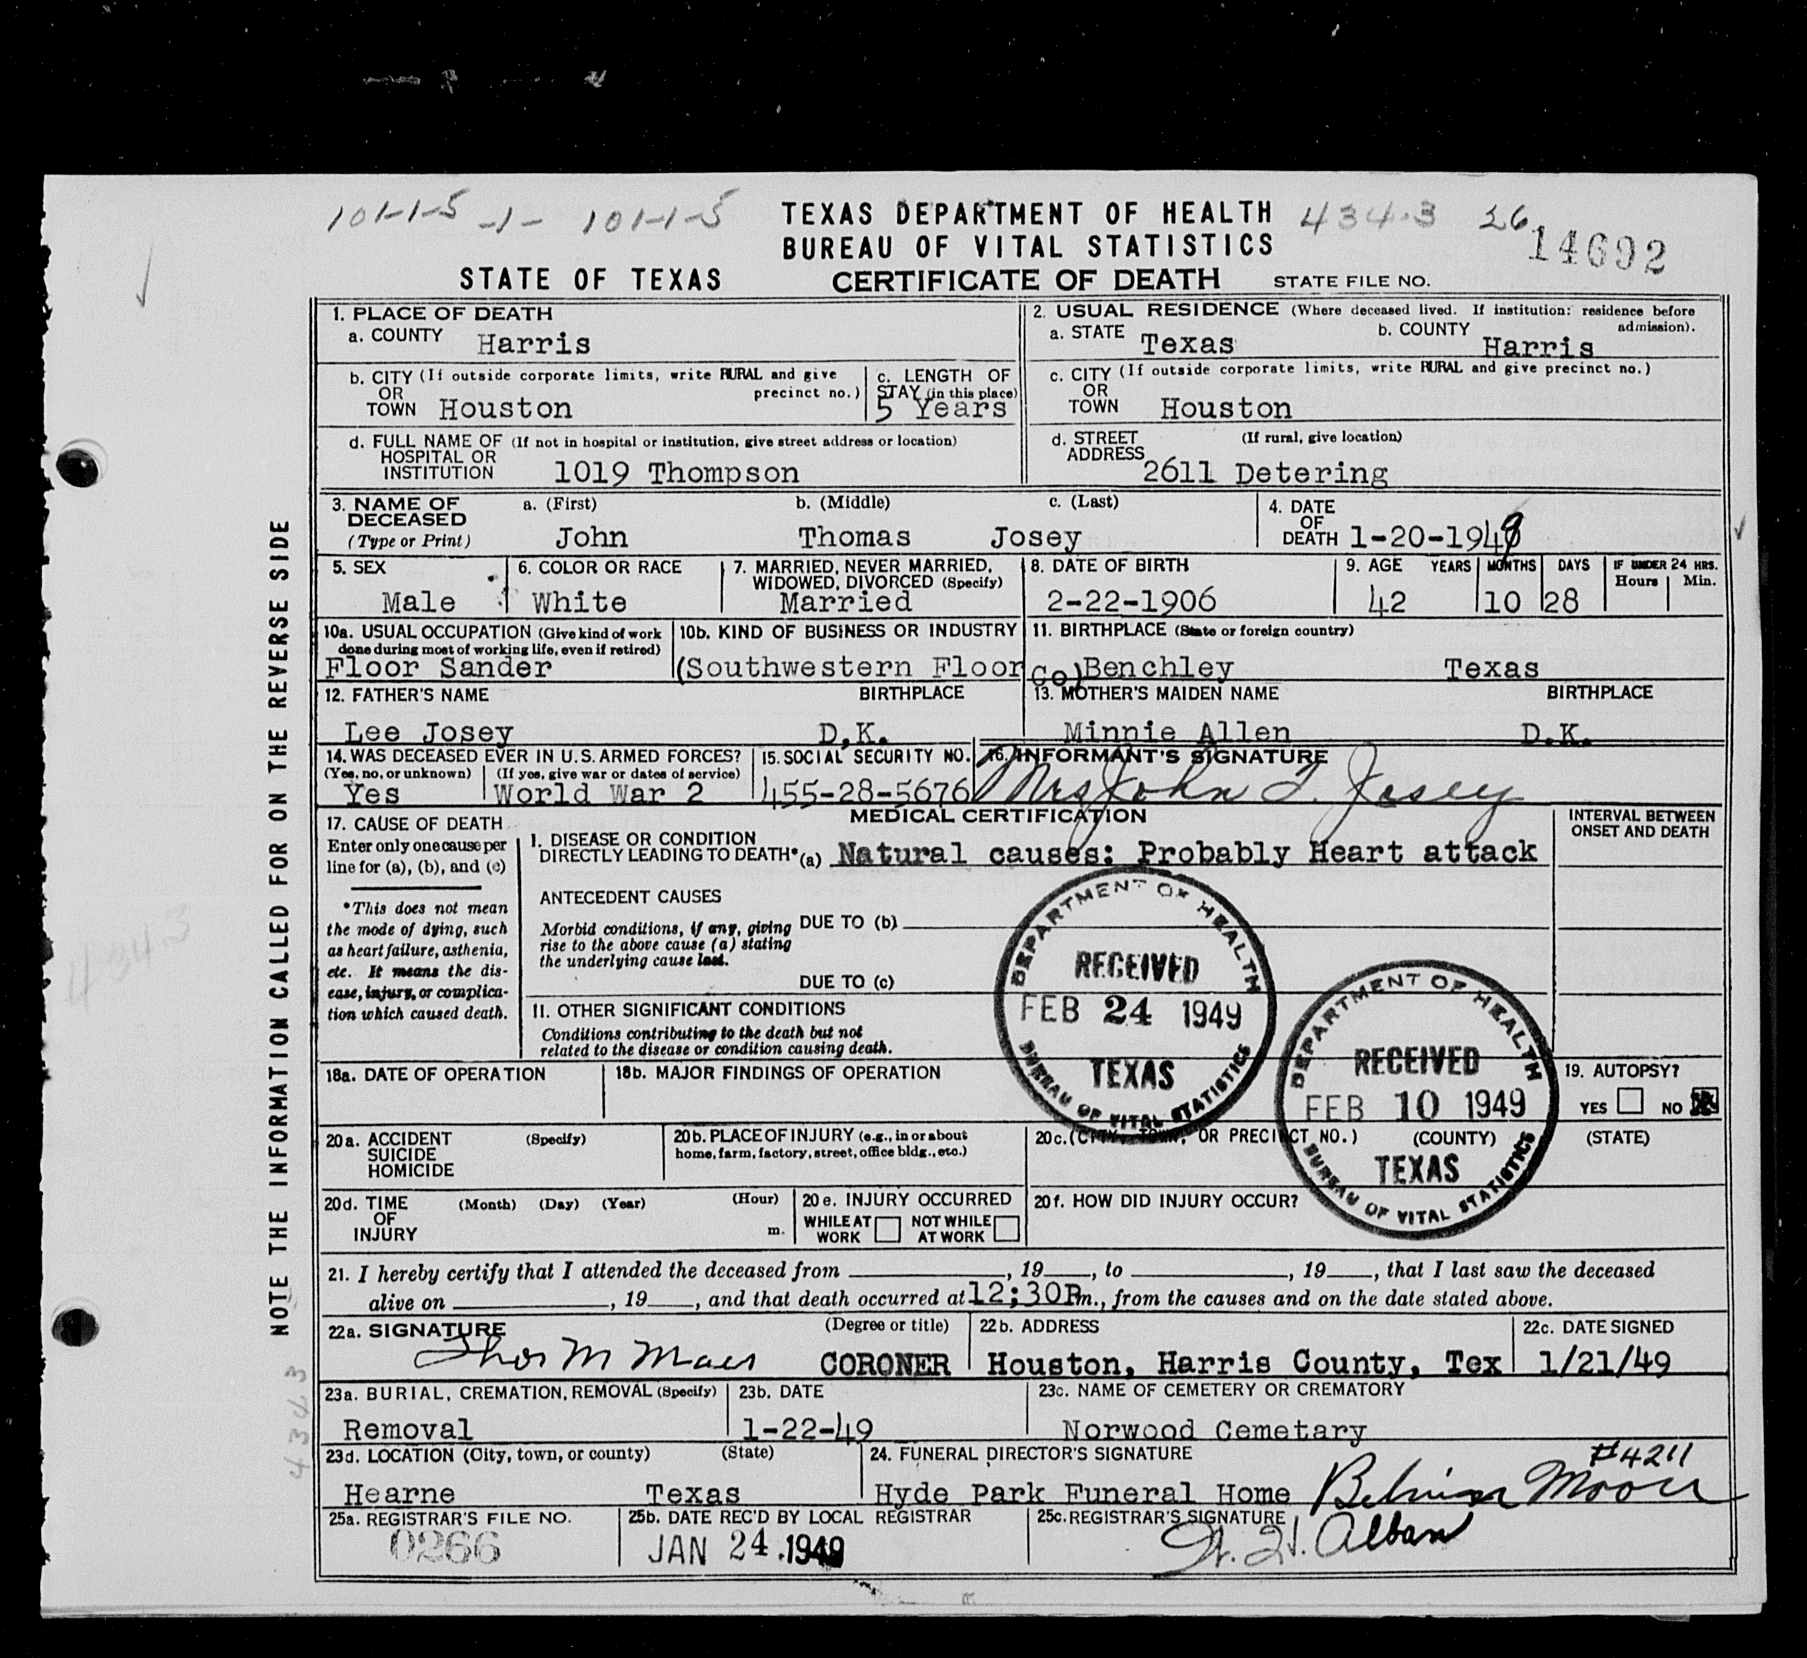 101-1-5 -1- 101-1-5 TEXAS DEPARTMENT OF HEALTH 434.3 26
BUREAU OF VITAL STATISTICS 14692
STATE OF TEXAS CERTIFICATE OF DEATH STATE FILE NO.
NOTE THE INFORMATION CALLED FOR ON THE REVERSE SIDE
1. PLACE OF DEATH
a. COUNTY Harris
2. USUAL RESIDENCE (Where deceased lived. If institution: residence before admission).
a. STATE Texas b. COUNTY Harris
b. CITY (If outside corporate limits, write RURAL and give precinct no.)
OR
TOWN Houston
c. LENGTH OF STAY (in this place)
5 Years
c. CITY (If outside corporate limits, write RURAL and give precinct no.)
OR
TOWN Houston
d. FULL NAME OF (If not in hospital or institution, give street address or location)
HOSPITAL OR
INSTITUTION 1019 Thompson
d. STREET (If rural, give location)
ADDRESS 2611 Detering
3. NAME OF DECEASED (Type or Print)
a. (First) b. (Middle) c. (Last)
John Thomas Josey
4. DATE OF DEATH 1-20-1949
5. SEX
Male
6. COLOR OR RACE
White
7. MARRIED, NEVER MARRIED, WIDOWED, DIVORCED (Specify)
Married
8. DATE OF BIRTH
2-22-1906
9. AGE YEARS MONTHS DAYS IF UNDER 24 HRS. Hours Min.
42 10 28
10a. USUAL OCCUPATION (Give kind of work done during most of working life, even if retired)
Floor Sander
10b. KIND OF BUSINESS OR INDUSTRY
(Southwestern Floor Co)
11. BIRTHPLACE (State or foreign country)
Benchley Texas
12. FATHER'S NAME BIRTHPLACE
Lee Josey D.K.
13. MOTHER'S MAIDEN NAME BIRTHPLACE
Minnie Allen D.K.
14. WAS DECEASED EVER IN U.S. ARMED FORCES?
(Yes, no, or unknown) (If yes, give war or dates of service)
Yes World War 2
15. SOCIAL SECURITY NO.
455-28-5676
16. INFORMANT'S SIGNATURE
Mrs John T. Josey
MEDICAL CERTIFICATION
INTERVAL BETWEEN ONSET AND DEATH
17. CAUSE OF DEATH
Enter only one cause per
line for (a), (b), and (c)
*This does not mean
the mode of dying, such
as heart failure, asthenia,
etc. It means the dis-
ease, injury, or complica-
tion which caused death.
I. DISEASE OR CONDITION
DIRECTLY LEADING TO DEATH* (a) Natural causes: Probably Heart attack
ANTECEDENT CAUSES
Morbid conditions, if any, giving
rise to the above cause (a) stating
the underlying cause last.
DUE TO (b)
DUE TO (c)
II. OTHER SIGNIFICANT CONDITIONS
Conditions contributing to the death but not
related to the disease or condition causing death.
DEPARTMENT OF HEALTH
RECEIVED
FEB 24 1949
TEXAS
BUREAU OF VITAL STATISTICS
DEPARTMENT OF HEALTH
RECEIVED
FEB 10 1949
TEXAS
BUREAU OF VITAL STATISTICS
18a. DATE OF OPERATION
18b. MAJOR FINDINGS OF OPERATION
19. AUTOPSY?
YES NO
20a. ACCIDENT (Specify)
SUICIDE
HOMICIDE
20b. PLACE OF INJURY (e.g., in or about
home, farm, factory, street, office bldg., etc.)
20c. (CITY, TOWN, OR PRECINCT NO.) (COUNTY) (STATE)
20d. TIME (Month) (Day) (Year) (Hour)
OF
INJURY m.
20e. INJURY OCCURRED
WHILE AT WORK NOT WHILE AT WORK
20f. HOW DID INJURY OCCUR?
21. I hereby certify that I attended the deceased from , 19 , to , 19 , that I last saw the deceased
alive on , 19 , and that death occurred at 12:30P m., from the causes and on the date stated above.
22a. SIGNATURE (Degree or title)
CORONER
22b. ADDRESS
Houston, Harris County, Tex
22c. DATE SIGNED
1/21/49
23a. BURIAL, CREMATION, REMOVAL (Specify)
Removal
23b. DATE
1-22-49
23c. NAME OF CEMETERY OR CREMATORY
Norwood Cemetary
23d. LOCATION (City, town, or county) (State)
Hearne Texas
24. FUNERAL DIRECTOR'S SIGNATURE #4211
Hyde Park Funeral Home
25a. REGISTRAR'S FILE NO.
0266
25b. DATE REC'D BY LOCAL REGISTRAR
JAN 24 1949
25c. REGISTRAR'S SIGNATURE
4343
4343